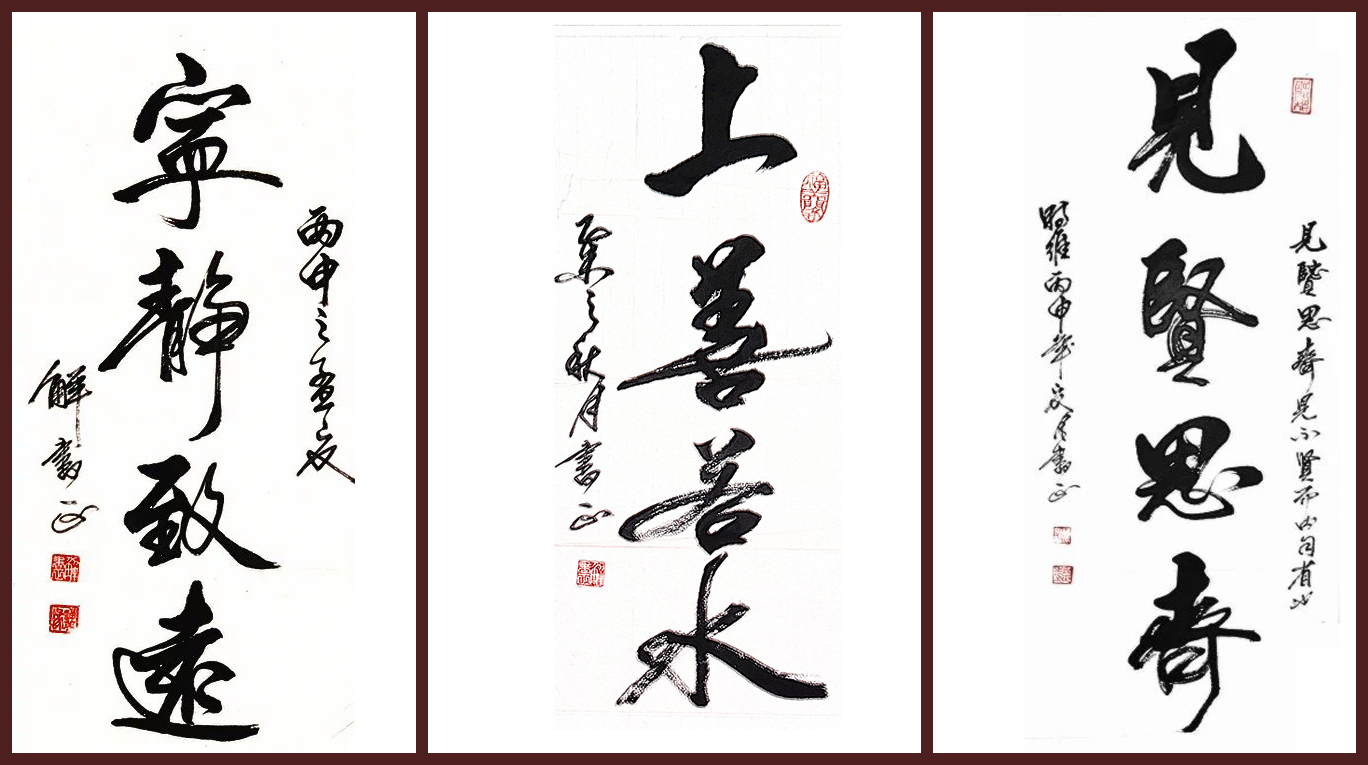 寧靜致遠
丙申之孟夏
解書正
上善若水
之秋月書正
見賢思齊
見賢思齊見不賢而內自省也
時維丙申年